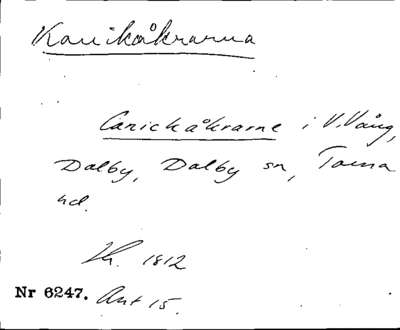 Kanikåkrarna
Canickåkrarne i V. Vång,
Dalby, Dalby sn, Torna
hd.
Sk. 1812
Nr 6247. Akt 15.